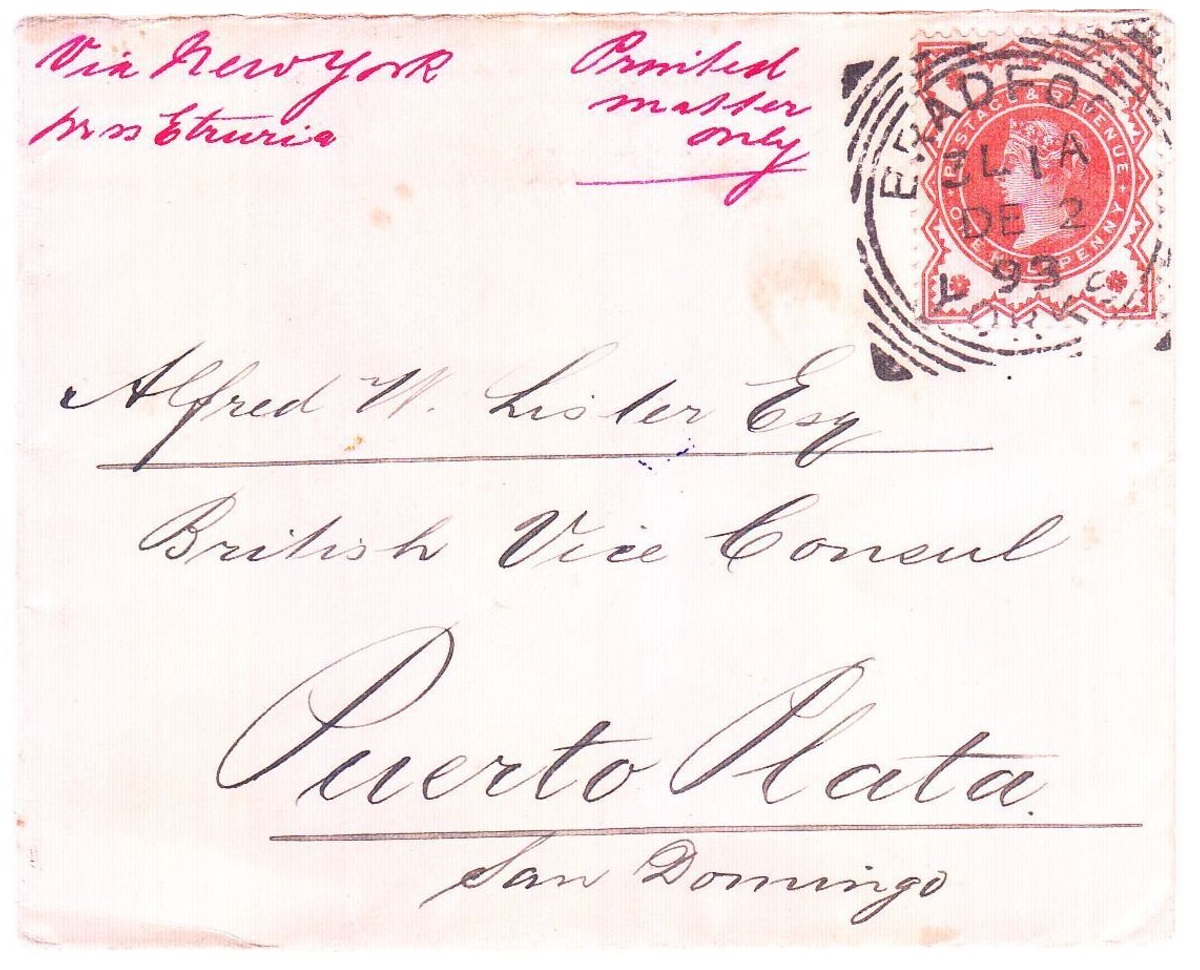 Via New York
per ss Etruria
Printed
matter
only
BRADFORD
3L1A
DE 2
93
YORKS
POSTAGE & REVENUE
ONE HALF PENNY
Alfred W. Lister Esq
British Vice Consul
Puerto Plata.
San Domingo